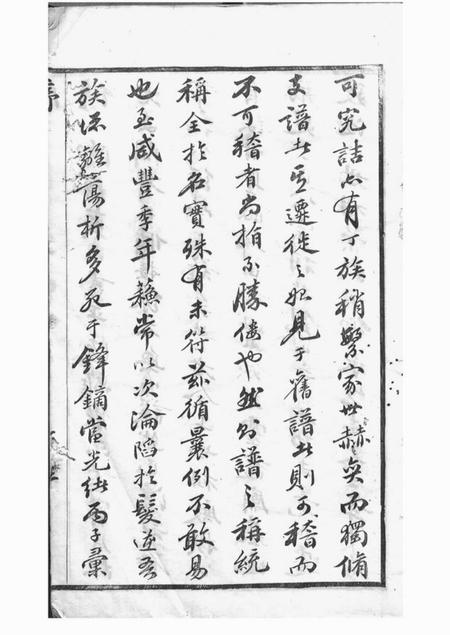 可究詰亦有丁族稍繁家世赫奕而獨脩
支譜者其遷徙之始見于舊譜者則可稽而
不可稽者尚指不勝僂也然則譜之稱統
稱全於名實殊有未符茲循曩例不敢易
也至咸豐季年蘇常以次淪陷於髮逆吾
族流離蕩析多死于鋒鏑當光緒丙子彙
序